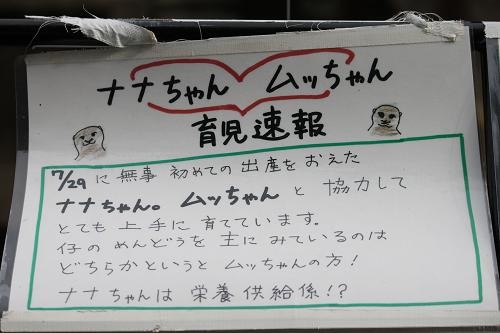 ナナちゃん ムッちゃん
育児速報
7/29に無事 初めての出産をおえた
ナナちゃん。ムッちゃんと 協力して
とても上手に育てています。
仔のめんどうを主にみているのは
どちらかというと ムッちゃんの方!
ナナちゃんは 栄養供給係!?